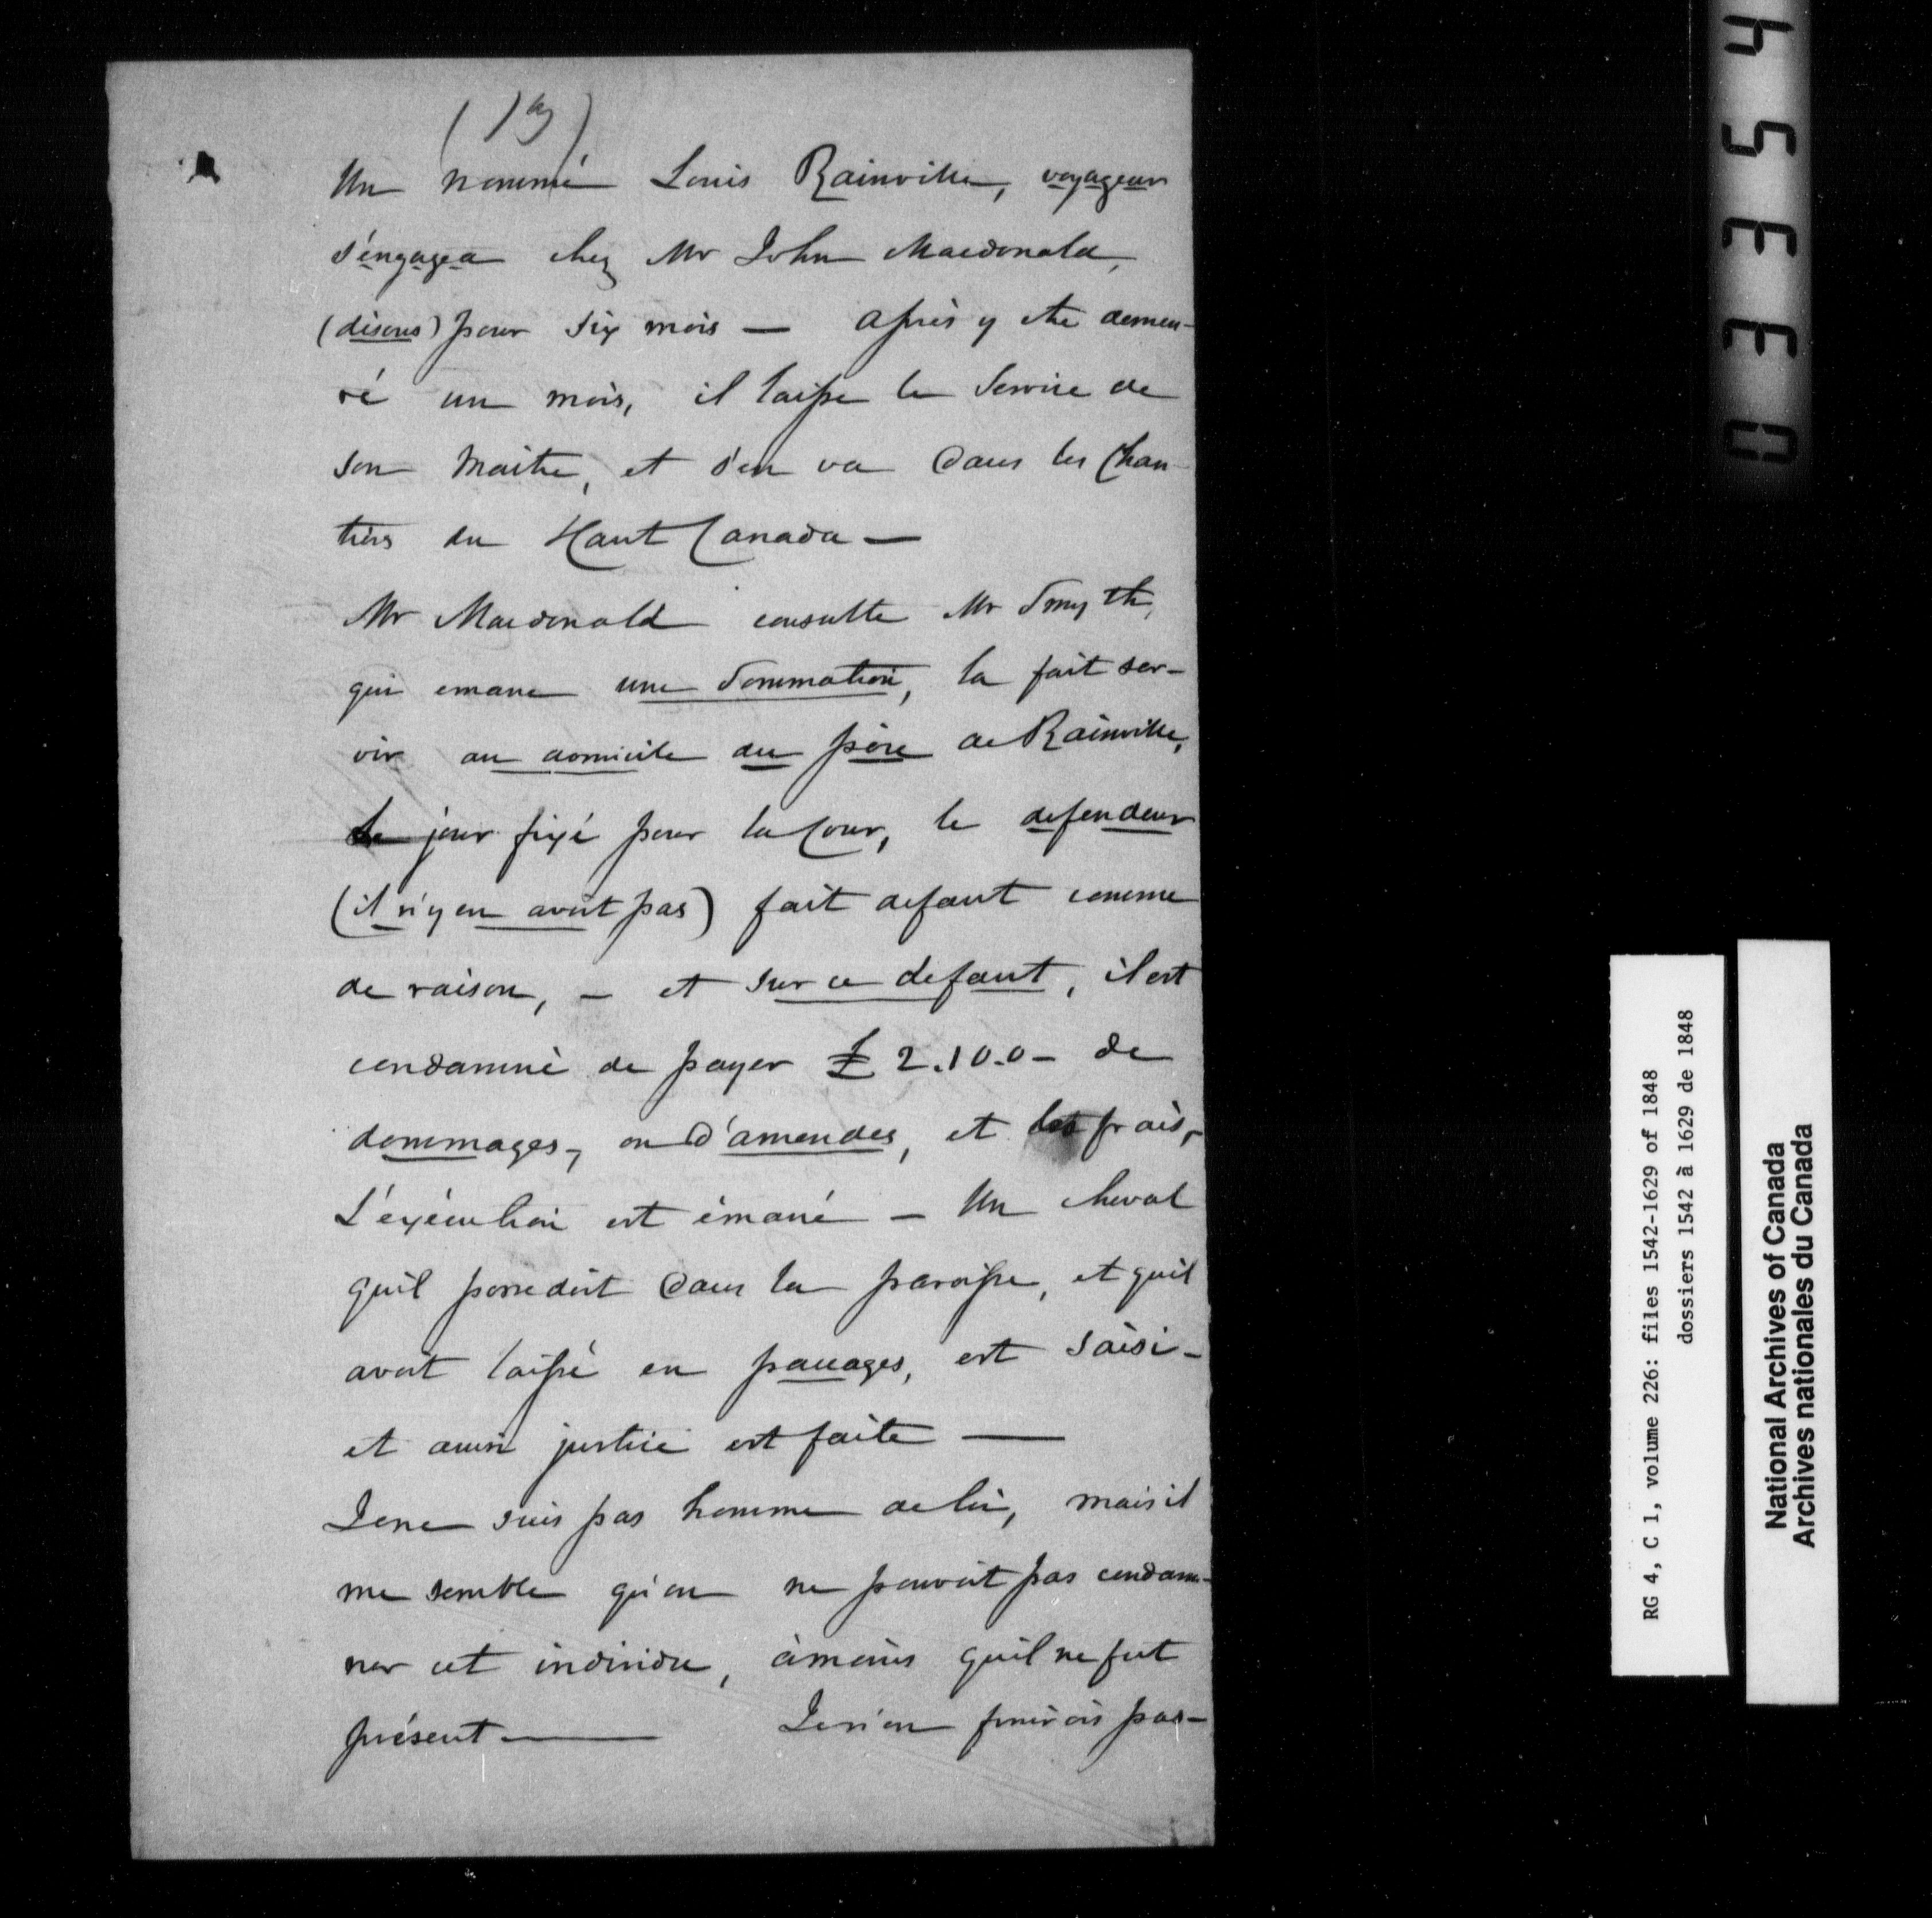 Un nommé Louis Rainville, voyageur
s'éngagea chez Mr John Macdonald,
(disons) pour six mois — Après y etre demeu-
ré un mois, il laisse le Service de
son Maitre, et s'en va dans les Chan-
tiers du Haut Canada —
Mr Macdonald consulte Mr Smyth,
qui emane une Sommation, la fait ser-
vir au domicile du père de Rainville,
Le jour fixé pour la Cour, le defendeur
(il n'y en avoit pas) fait defaut comme
de raison, — et sur ce defaut, il est
condamné de payer £ 2.10.0 — de
dommages, ou d'amendes, et les frais,
L'éxécution est émané — Un cheval
qu'il possedoit dans la paroisse, et qu'il
avoit laissé en pacages, est saisi —
et ainsi justice est faite —
Je ne suis pas homme de loi, mais il
me semble qu'on ne pouvoit pas condam-
ner cet individu, à moins qu'il ne fut
présent — Je n'en finirois pas —
03354
RG 4, C 1, volume 226: files 1542-1629 of 1848
dossiers 1542 à 1629 de 1848
National Archives of Canada
Archives nationales du Canada